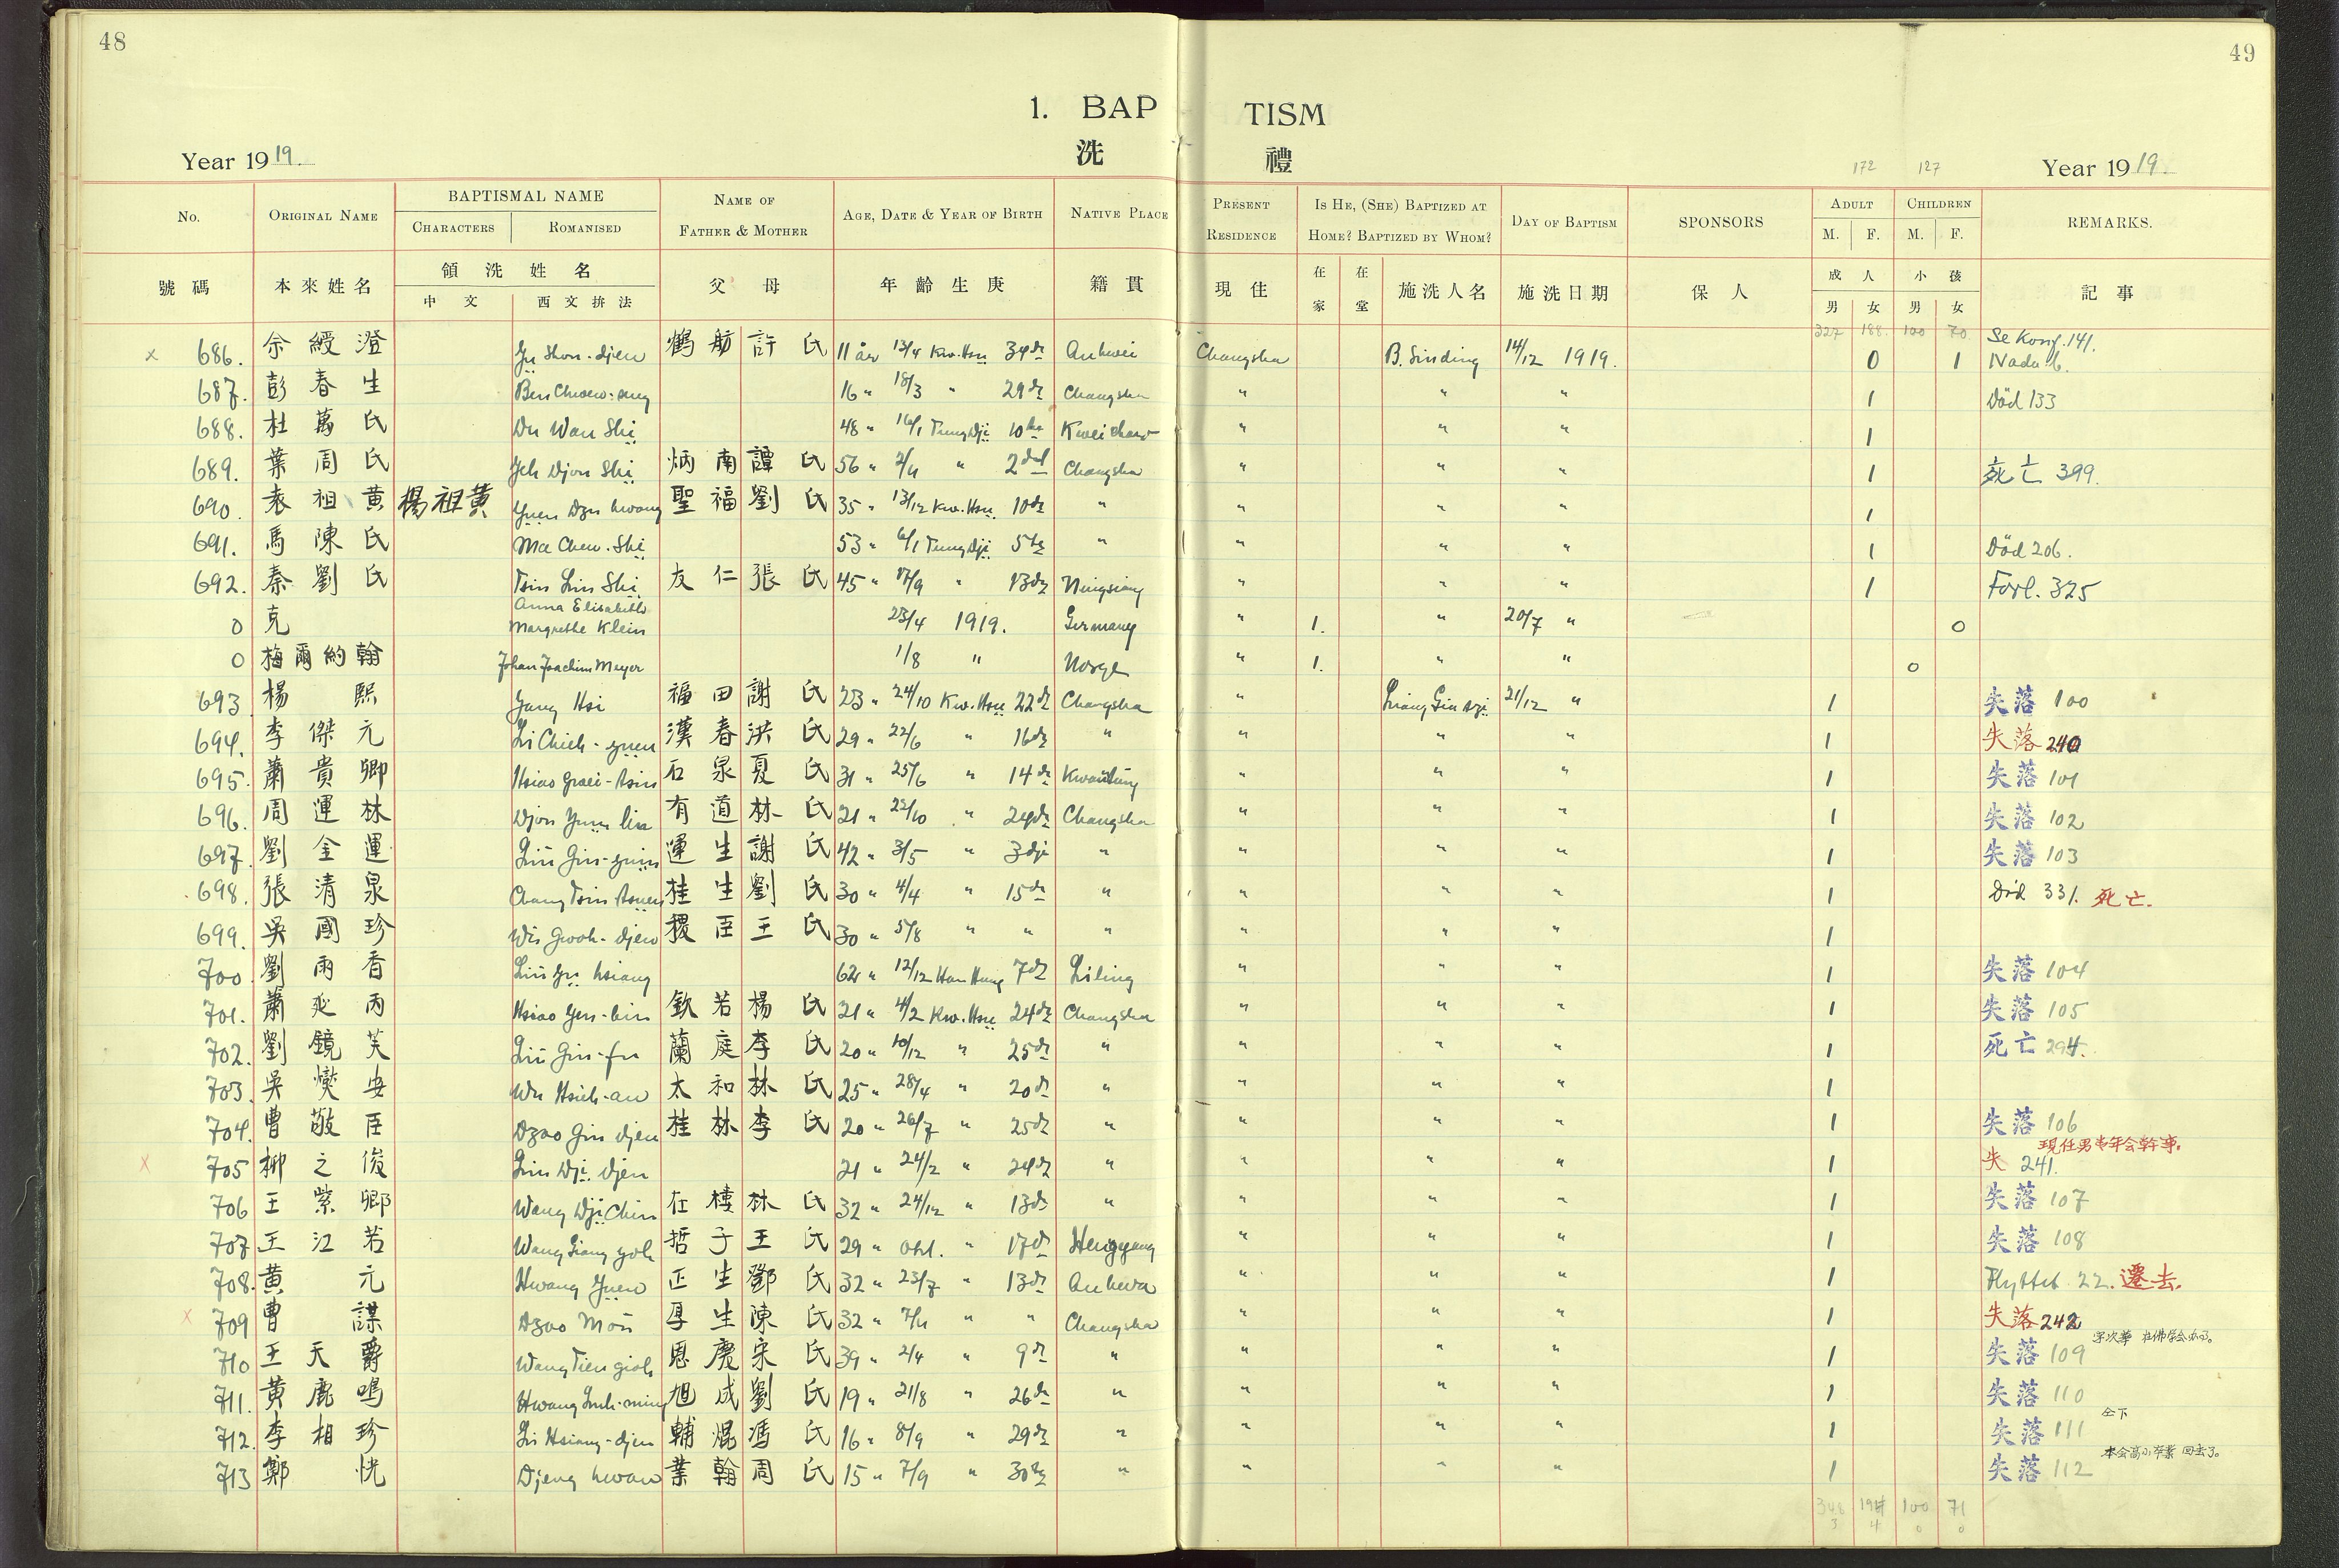 48
49
1. BAP TISM
洗 禮
Year 1919.
172 127
Year 1919.
No. ORIGINAL NAME BAPTISMAL NAME CHARACTERS ROMANISED NAME OF FATHER & MOTHER AGE, DATE & YEAR OF BIRTH NATIVE PLACE PRESENT RESIDENCE IS HE, (SHE) BAPTIZED AT HOME? BAPTIZED BY WHOM? DAY OF BAPTISM SPONSORS ADULT M. F. CHILDREN M. F. REMARKS.
號碼 本來姓名 領洗姓名 中文 西文拚法 父母 年齡生庚 籍貫 現住 在家 在堂 施洗人名 施洗日期 保人 成人 男 女 小孩 男 女 記事
327 188 100 70
x 686. 余綬澄 Yu Shou-djen 鶴舫 許氏 11 år 13/4 Kw.Hsu 34 Anhwei Changsha B. Sinding 14/12 1919. 0 1 Se Konf. 141.
687. 彭春生 16 " 18/3 " 29 Changsha " " " 1 Död 133
688. 杜萬氏 Du Wan Shi 48 " 16/1 Tung Dji 10 Kweichow " " " 1
689. 葉周氏 Yeh Djou Shi 炳南 譚氏 56 " " 2 Changsha " " " 1 死亡 399.
690. 袁祖黄 楊祖黄 Yuen Dzu hwang 聖福 劉氏 35 " 13/12 Kw.Hsu 10 " " " " 1
691. 馬陳氏 Ma Chen-Shi 53 " 6/1 Tung Dji 5 " " " " 1 Död 206.
692. 秦劉氏 Tsin Liu Shi 友仁 張氏 45 " 17/9 " 13 Ningsiang " " " 1 Forl. 325
0 克 Anna Elisabeth Margrethe Klein 23/4 1919. Germany " 1. " 20/7 " 0
0 梅爾約翰 Johan Joachim Meyer 1/8 " Norge " 1. " " 0
693 楊熙 Yang Hsi 福田 謝氏 23 " 24/10 Kw.Hsu 22 Changsha " 21/12 " 1 失落 100
694. 李傑元 Li Chieh-yuen 漢春 洪氏 29 " 22/6 " 16 " " " " 1 失落 240
695. 蕭貴卿 石泉 夏氏 31 " 25/6 " 14 Kwantung " " " 1 失落 101
696. 周運林 Djou Yuin lin 有道 林氏 21 " 22/10 " 24 Changsha " " " 1 失落 102
697. 劉金運 Liu Gin-yuin 運生 謝氏 42 " 3/5 " 3 " " " " 1 失落 103
698. 張清泉 桂生 劉氏 30 " 4/4 " 15 " " " " 1 Död 331. 死亡.
699. 吳國珍 Wu Gwoh-djen 稷臣 王氏 30 " 5/8 " " " " " " 1
700. 劉雨香 Liu Yu hsiang 62 " 12/12 7 Liling " " " 1 失落 104
701. 蕭延丙 Hsiao Yen-bin 欽若 楊氏 21 " 4/2 Kw.Hsu 24 Changsha " " " 1 失落 105
702. 劉鏡芙 Liu Gin-fu 蘭庭 李氏 20 " 10/12 " 25 " " " " 1 死亡 294.
703. 吳燮安 Wu Hsieh-an 太和 林氏 25 " 28/4 " 20 " " " " 1
704. 曹敬臣 Dzao Gin djen 桂林 李氏 20 " 26/7 " 25 " " " " 1 失落 106
現任男青年会幹事。
x 705 柳之俊 Liu Dji djen 21 " 24/2 " 24 " " " " 1 失 241.
706 王紫卿 Wang Dji Chin 林氏 32 " 24/12 " 13 " " " " 1 失落 107
707 王江若 Wang Giang yoh 哲子 王氏 29 " " 17 Hengyang " " " 1 失落 108
708. 黄元 Hwang Yuen 正生 鄧氏 32 " 23/7 " 13 Anhwa " " " 1 Flyttet 22. 遷去.
x 709 曹謀 Dzao Mou 厚生 陳氏 32 " " " Changsha " " " 1 失落 242
710 王天爵 Wang Tien gioh 恩慶 宋氏 39 " 2/4 " 9 " " " " 1 失落 109
711. 黄鹿鳴 Hwang Luh-ming 旭成 劉氏 19 " 21/8 " 26 " " " " 1 失落 110
仝下
712. 李相珍 Li Hsiang-djen 輔焜 馮氏 16 " 8/9 " 29 " " " " 1 失落 111
本会高小卒業 回去了。
713 鄭恍 Djeng hwan 業翰 周氏 15 " 7/9 " 30 " " " " 1 失落 112
348 194 100 71
3 4 0 0